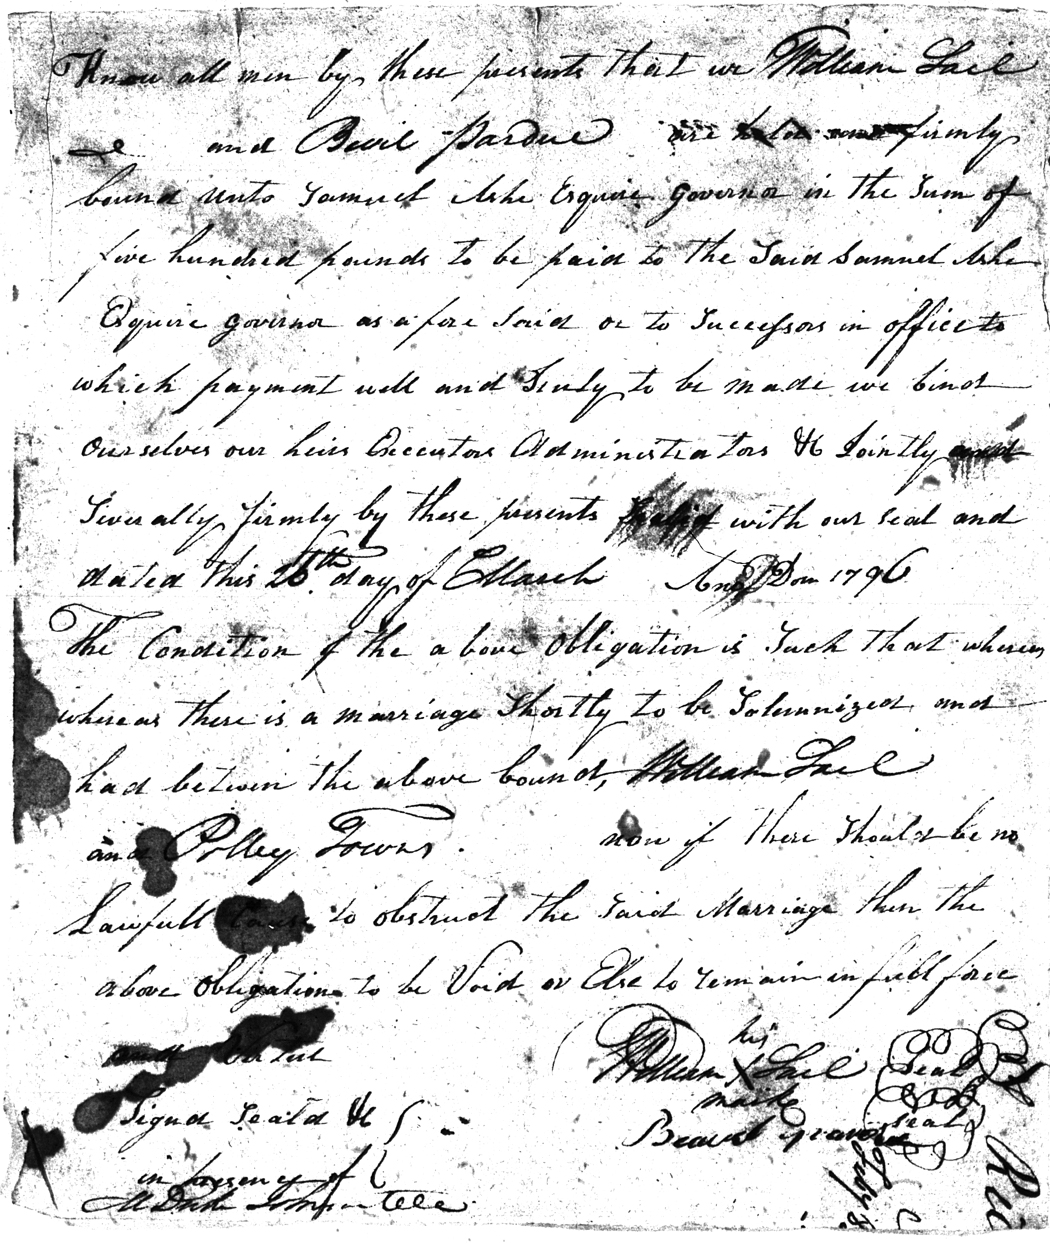 Know all men by these presents that we William Lail
and Bevil Pardue are held and firmly
bound unto Samuel Ashe Esquire governor in the Sum of
five hundred pounds to be paid to the Said Samuel Ashe
Esquire governor as a fore Said or to Successors in office to
which payment well and Truly to be made we bind
Ourselves our heirs Executors Administrators &c Jointly and
Severally firmly by these presents with our seal and
dated this 26th day of March Dom 1796
The Condition of the above Obligation is Such that
whereas there is a marriage Shortly to be Solemnized and
had between the above bound, William Lail
and Polley Towns. now if there Should be no
Lawfull Cause to obstruct the Said Marriage then the
above Obligation to be Void or Else to remain in full force
and
his
William X Lail Seal
mark
seal
Signd Seald &c
in of